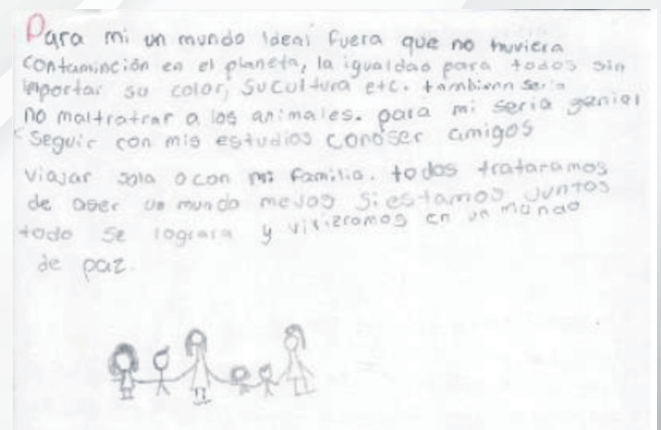 Para mi un mundo ideal fuera que no huviera
contaminción en el planeta, la igualdad para todos sin
importar su color, su cultura etc. tambienn seria
no maltratrar a los animales. para mi seria genial
seguir con mis estudios conoser amigos
viajar sola o con mi familia. todos trataramos
de aser un mundo mejor si estamos juntos
todo se lograra y vivieramos en un mundo
de paz.